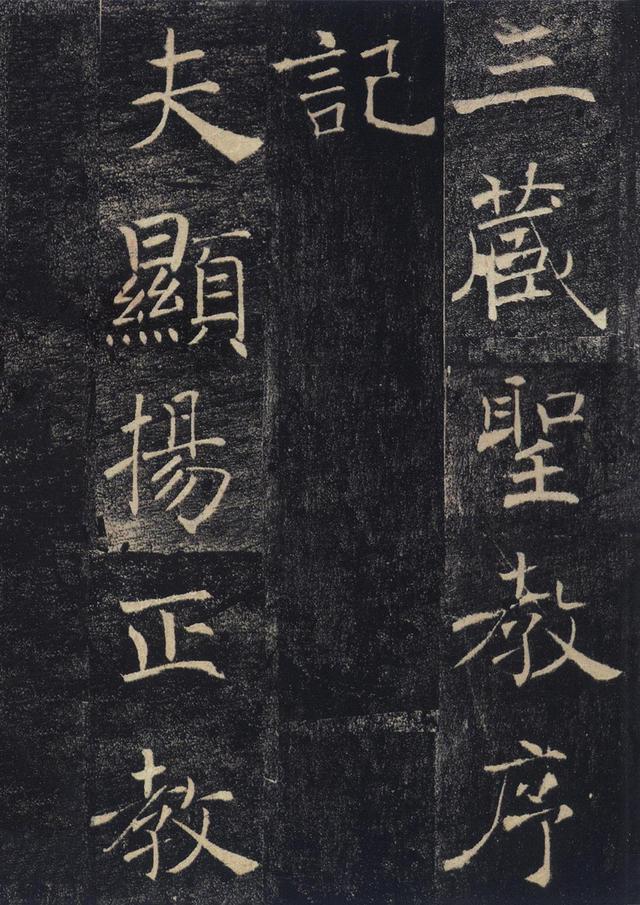 三藏聖教序
記
夫顯揚正教